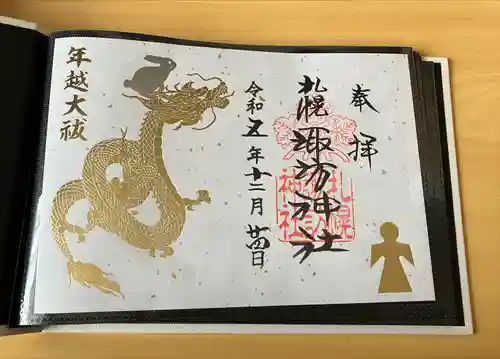 奉拝
札幌諏訪神社
札幌
諏訪
神社
令和五年十二月廿四日
年越大祓